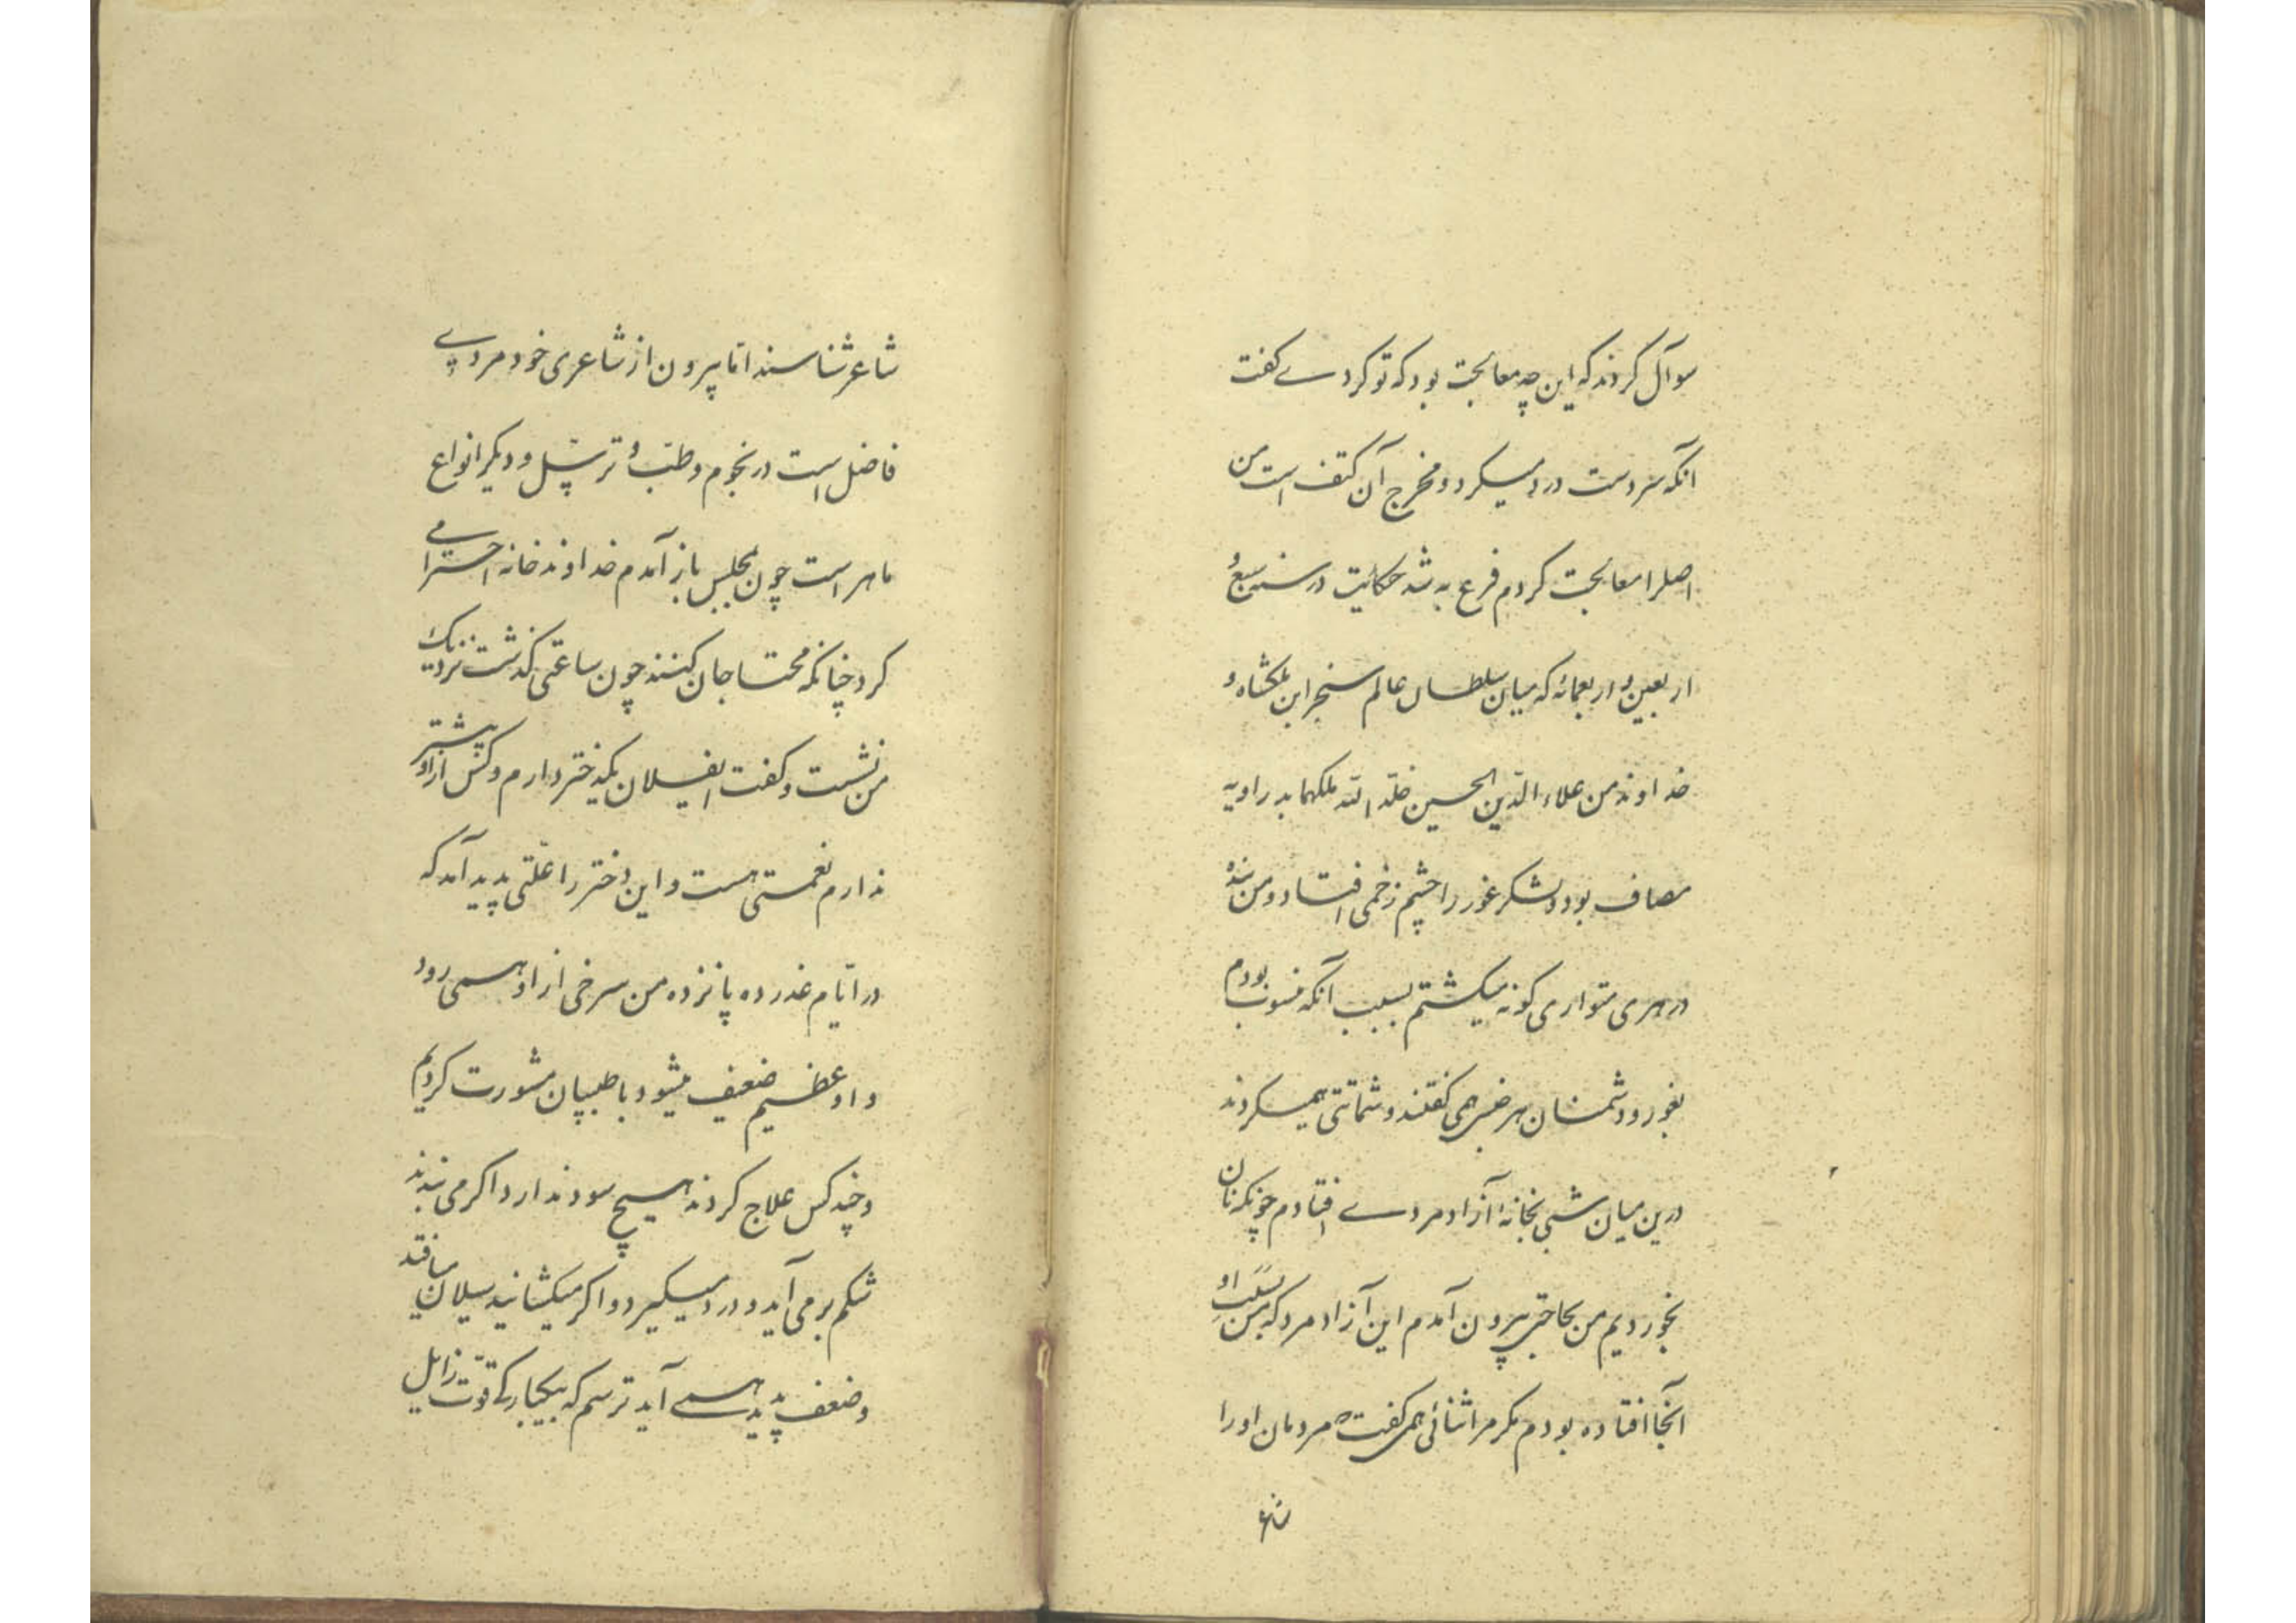 سوآل کردند که این چه معالجت بود که تو کردے گفت
آنکه سردست درد میکرد و مخرج آن کتف است من
اصل را معالجت کردم فرع به شد حکایت در سنه سبع و
اربعین و اربعمائه که میان سلطان عالم سنجر ابن ملکشاه و
خداوند من علاء الدّین الحسین خلّد الله ملکهما بدر اوبه
مصاف بود و لشکر غور را چشم زخمی افتاد و من بنده
در هری متواری گونه میگشتم بسبب آنکه منسوب بودم
بغور و دشمنان هر خبر همی گفتند و شماتتی همیکردند
درین میان شبی بخانهٔ آزاد مردے افتادم چونکه نان
بخوردیم من بحاجتی بیرون آمدم این آزاد مرد که من بسبب او
آنجا افتاده بودم مگر مرا ثنائی همی گفت که مردمان او را
شاعر
شاعر شناسند امّا بیرون از شاعری خود مردے
فاضل است در نجوم و طبّ و ترسّل و دیگر انواع
ماهر است چون بمجلس باز آمدم خداوند خانه احترامے
کرد چنانکه محتاجان کنند چون ساعتی گذشت نزدیک
من نشست و گفت ایفلان یک دختر دارم و کس از او بیشتر
ندارم نعمتی هست و این دختر را علّتی پدید آمد که
در ایّام عذر ده پانزده من سرخی از او همی رود
و او عظیم ضعیف میشود با طبیبان مشورت کردیم
و چند کس علاج کردند هیچ سود ندارد اگر می بندند
شکم برمی آید و درد میگیرد و اگر میگشانید سیلان میافتد
و ضعف پدید همے آید ترسم که بیکبارگے قوّت زایل